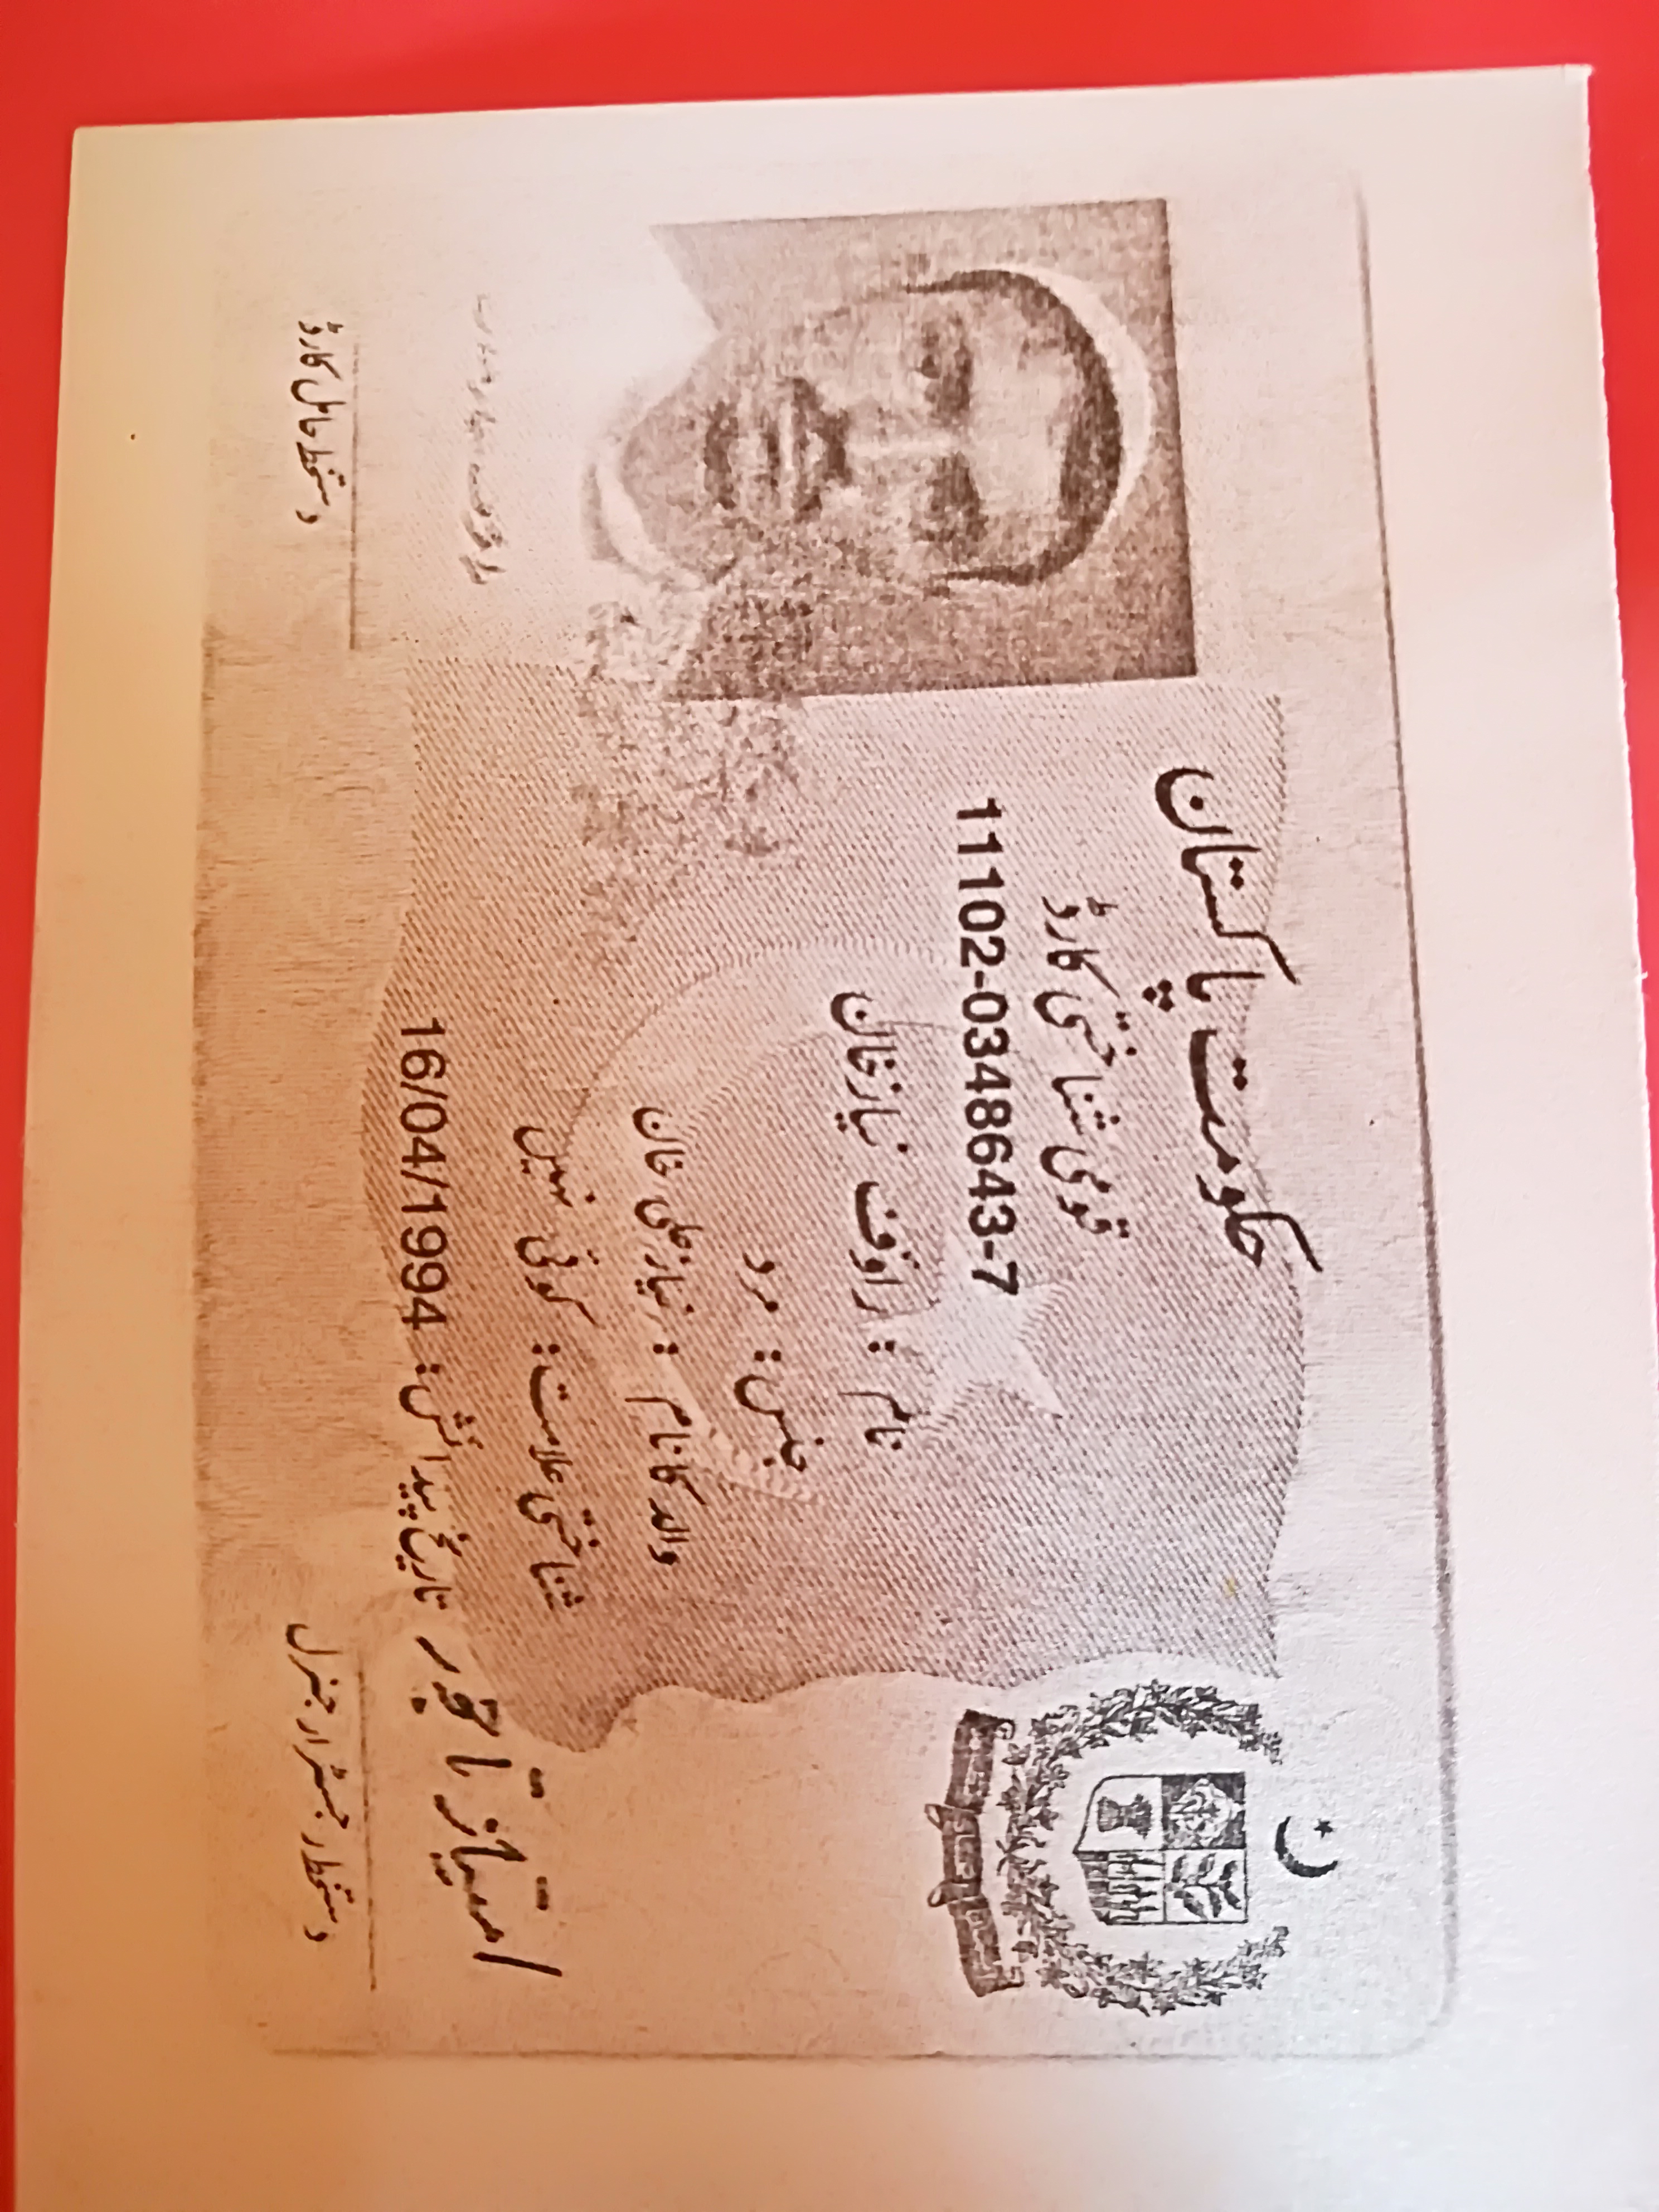 حکومت پاکستان
قومی شناختی کارڈ
11102-0348643-7
نام : راؤف نیاز خان
جنس : مرد
والد کا نام : نیاز علی خان
شناختی علامت : کوئی نہیں
تاریخ پیدائش : 16/04/1994
امتیاز تاجور
دستخط رجسٹرار جنرل
دستخط حامل کارڈ